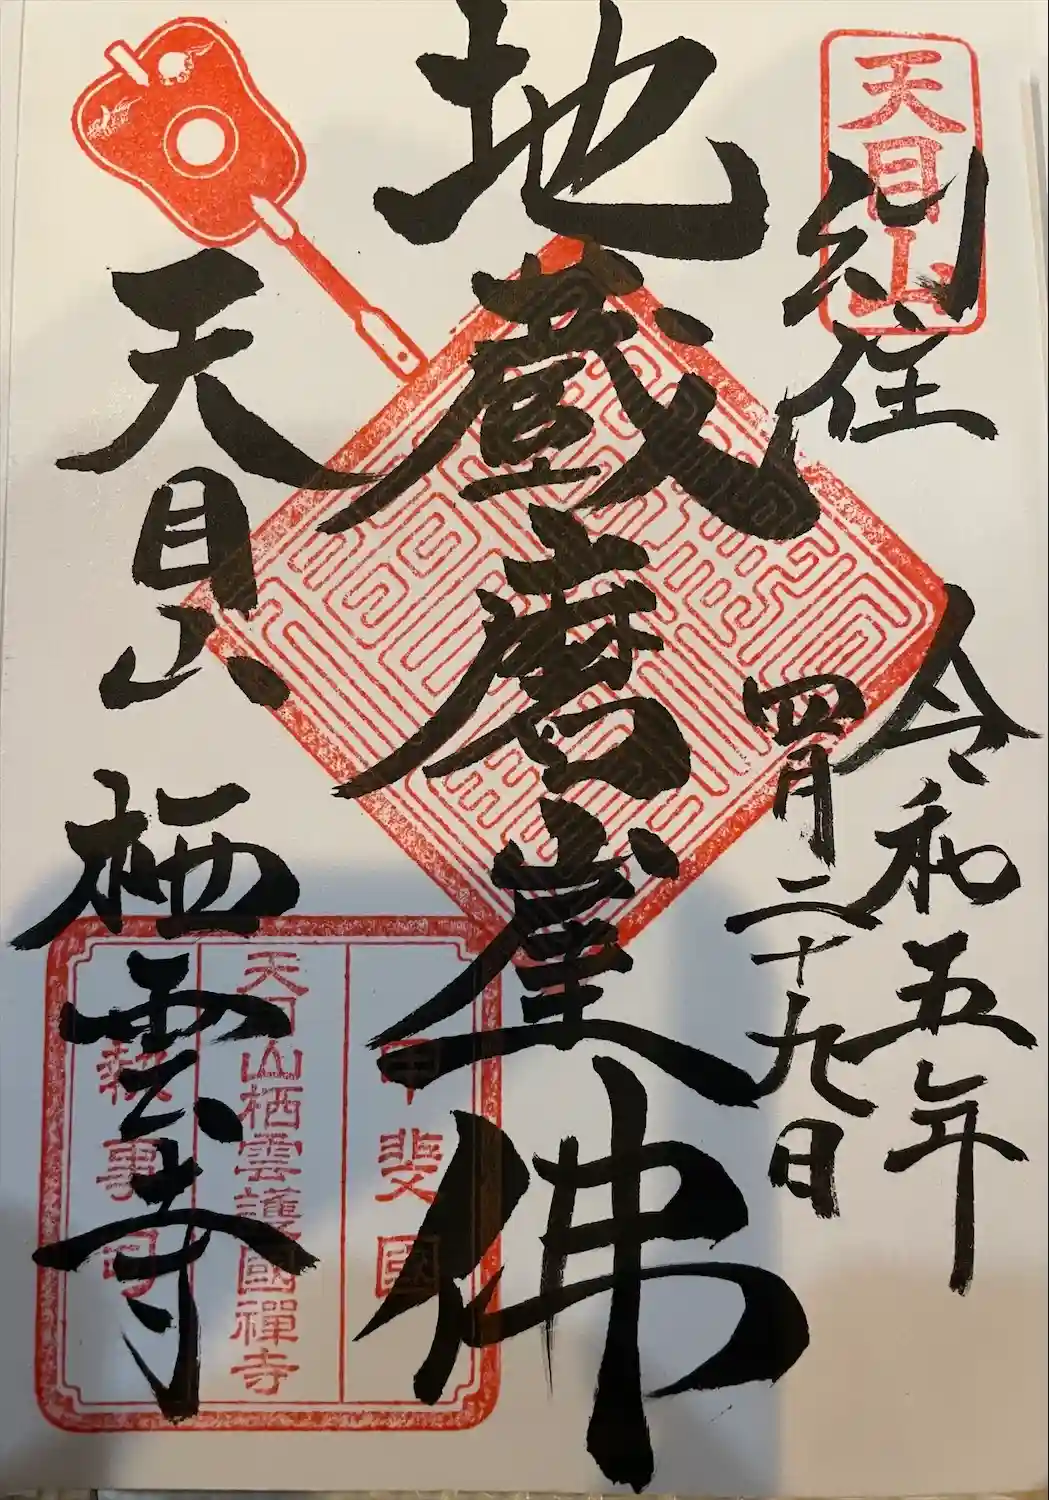 天目山
幻住
令和五年
四月二十九日
地蔵磨崖佛
天目山 栖雲寺
甲斐國
天目山栖雲護國禪寺
執事司